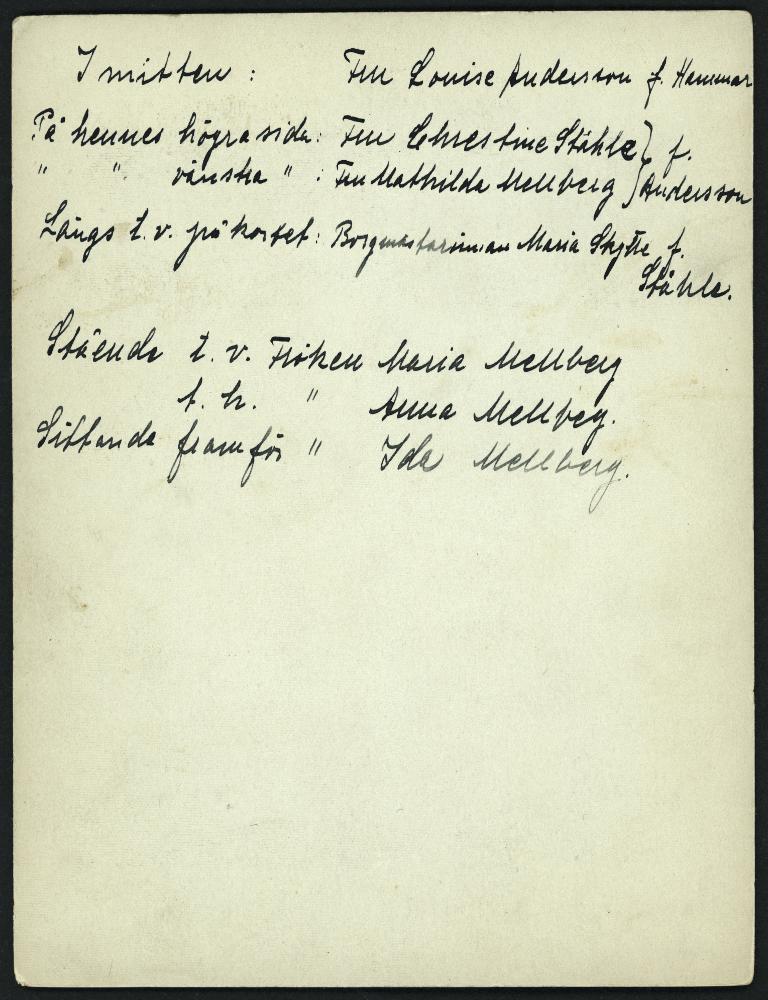 I mitten : Fru Louise Andersson f. Hammar
På hennes högra sida: Fru Christine Ståhle } f.
" " vänstra " : Fru Mathilda Mellberg } Andersson
Längs t.v. på kortet: Borgmästarinnan Maria Skytte f.
Ståhle.
Stående t. v. Fröken Maria Mellberg
t. h. " Anna Mellbeg.
Sittande framför " Ida Mellberg.